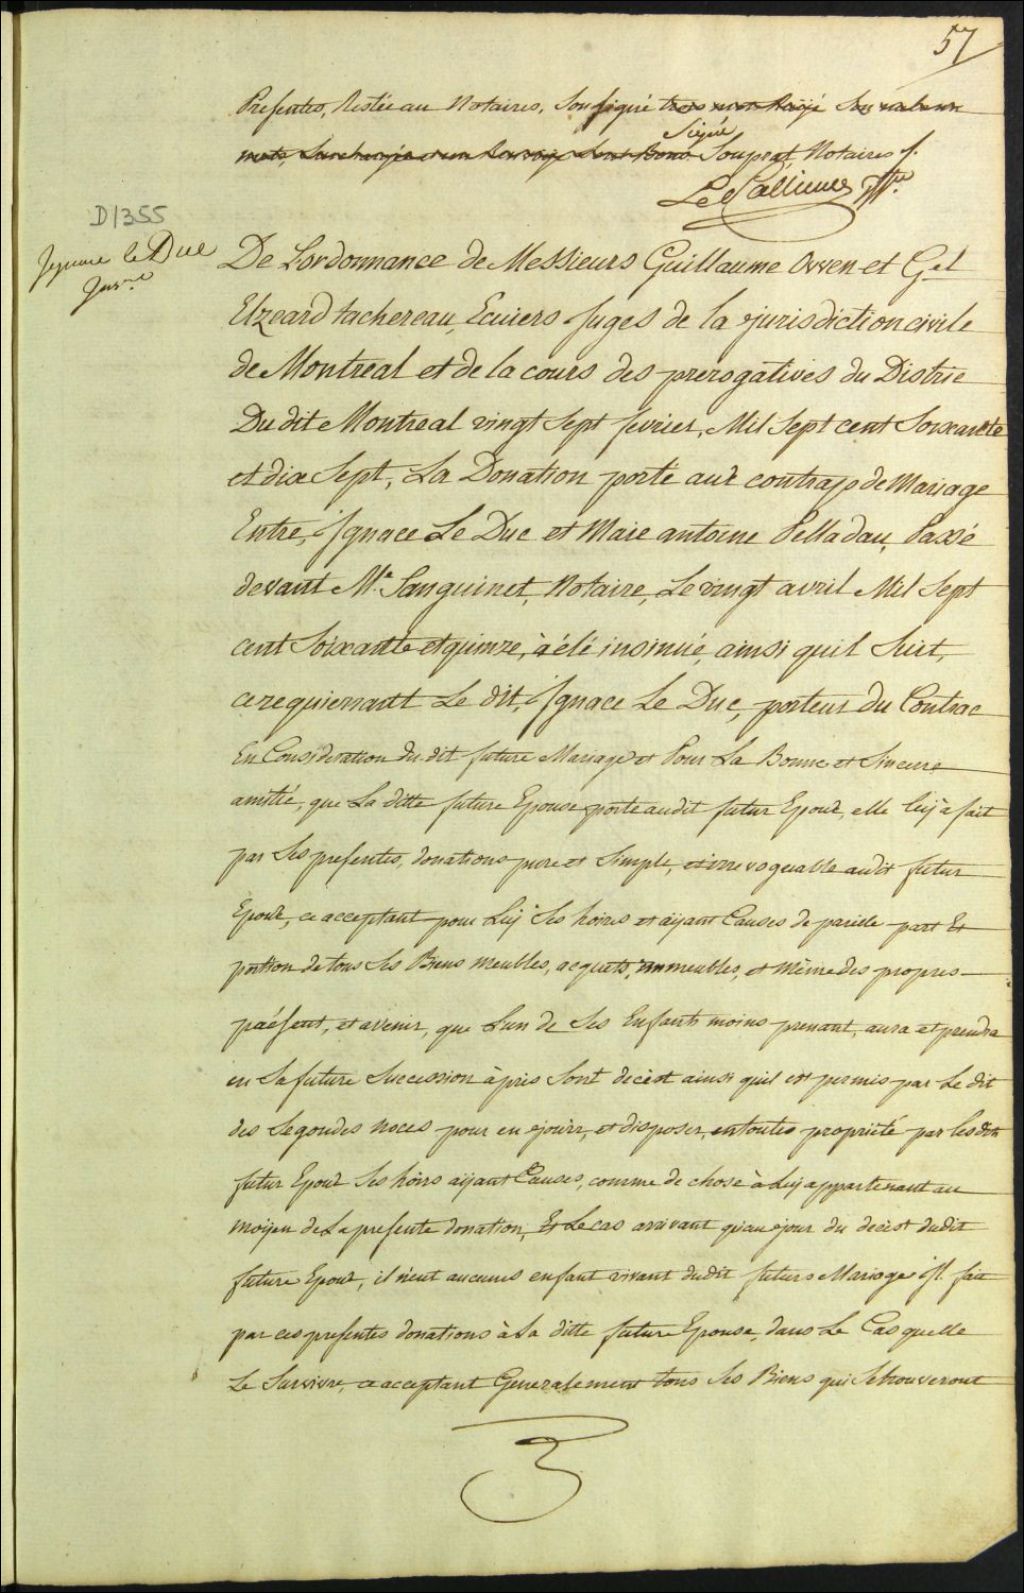 57
Presentes, Restée au Notaires, Sousigné trois mots Rayé Sou valeur
Signé
mots, Surchargée un Renvoye Sont Bons Souprat, Notaires ∫.
Le Pallieur
D1355
Jgnace le Duc
De Lordonnance de Messieurs Guillaume Owen et G.el
Elzeard tachereau, Ecuiers Juges de la jurisdiction civile
de Montreal et de la cours des prerogatives du Distric
Du dit Montreal vingt Sept fevrier, Mil Sept cent Soixante
et dix Sept, La Donation porté aux contrajs de Mariage
Entre, iJgnace Le Duc et Marie antoine Pelladau, Passé
devant M.e Sanguinet, Notaire, Le vingt avril Mil Sept
cent Soixante et quinze, à élé insinué, ainsi quil Suit,
ce requierrantt Le dit, iJgnace Le Duc, porteur du Contrac
En Consideration du dit future Mariage et Pour La Bonne et Sincerre
amitié, que La ditte future Epouse porte audit futur Epoux, elle luy à fait
par Ses presentes, donations pure et Simple, et irrevoquable audit futur
Epoux, ce acceptant pour Luy Ses hoires et aÿant Causes de pareille part Et
portion de tous Ses Biens meubles, acquets, immeubles, et même des propres
présent, et avenir, que Lun de Ses Enfants moins prenant, aura et prendra
en Sa future Succession àpres Sont decèst ainsi quil est permis par Le dit
des Segondes noces pour en jouir, et disposer, en toutes propriété par les dits
futur Epoux Ses hoirs aÿant Causes, comme de chose à Luy appartenant au
moÿen de La presente donation, Et Le cas arrivant qu'au jour du decèst dudit
future Epoux, il n'eut aucunes enfant vivant dudit futurs Mariage iJl fait
par ces presentes donations à La ditte future Epouse, dans Le Cas quelle
Le Survivre, ce acceptant Generalement tous Ses Biens qui Se trouveront